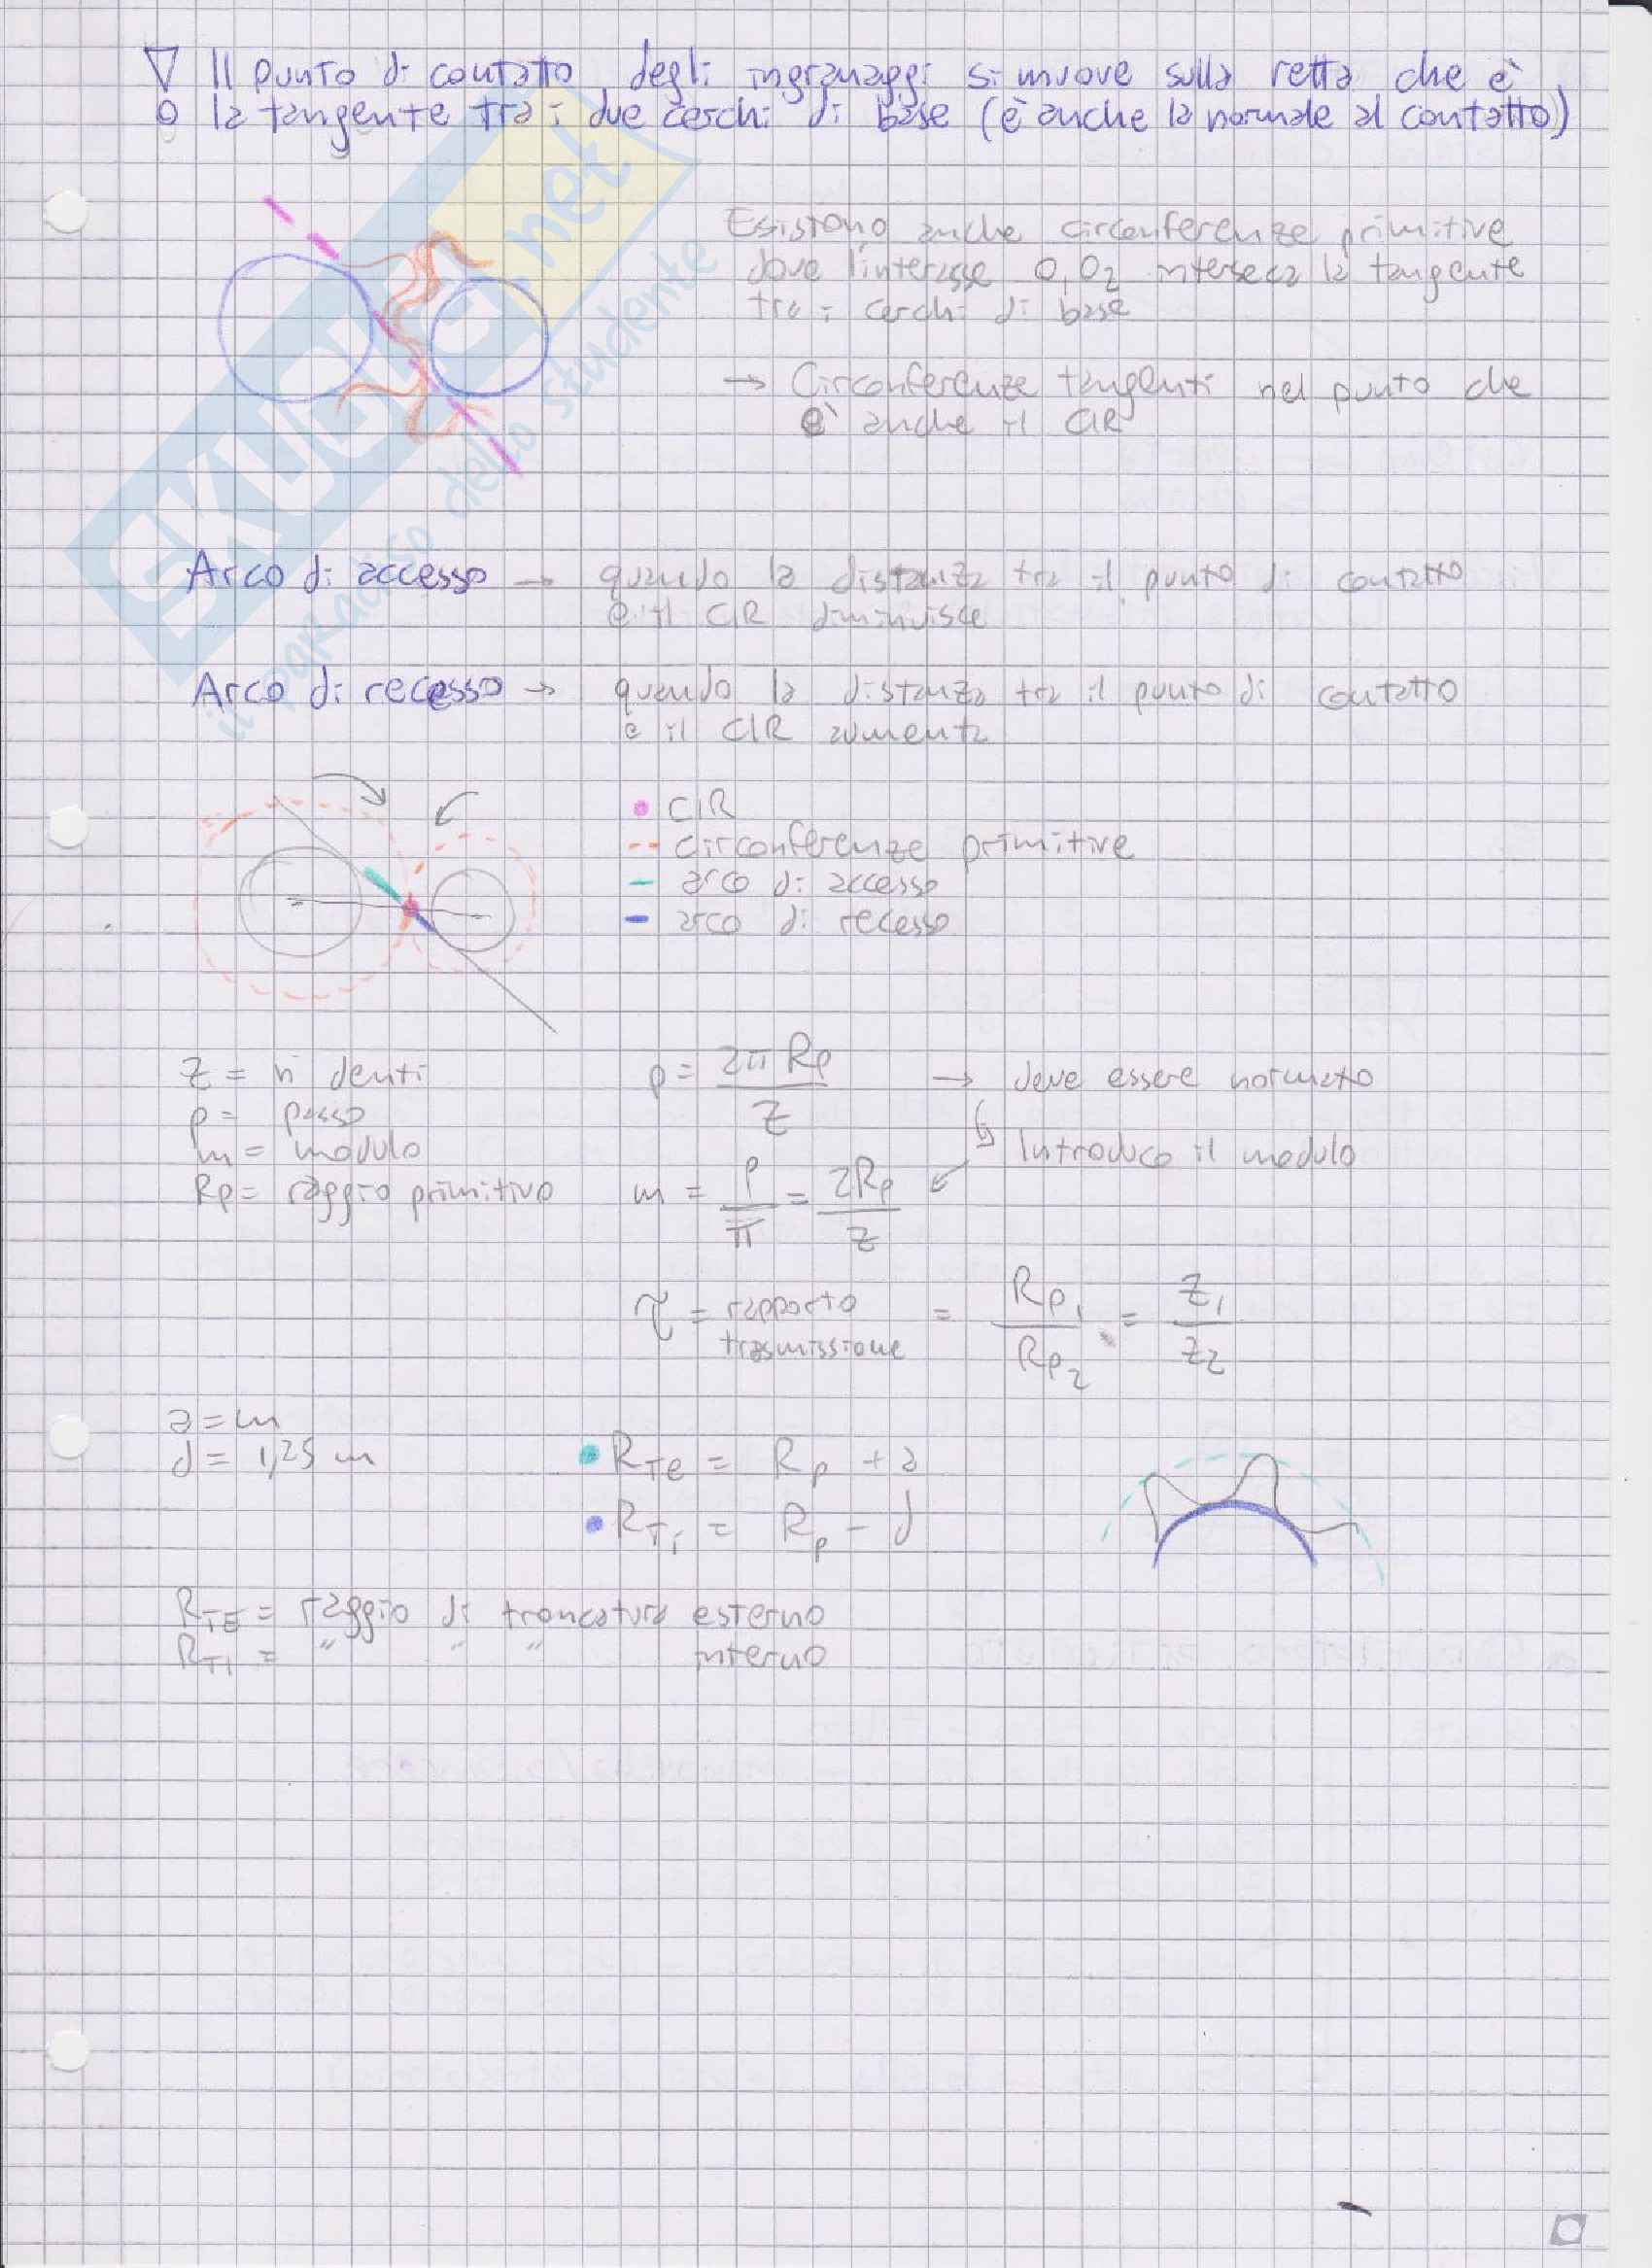 Il punto di contatto degli ingranaggi si muove sulla retta che è
la tangente tra i due cerchi di base (è anche la normale al contatto)
Esistono anche circonferenze primitive
dove l'interasse O1O2 interseca la tangente
tra i cerchi di base
→ Circonferenze tangenti nel punto che
è anche il CIR
Arco di accesso → quando la distanza tra il punto di contatto
e il CIR diminuisce
Arco di recesso → quando la distanza tra il punto di contatto
e il CIR aumenta
CIR
circonferenze primitive
arco di accesso
arco di recesso
Z = n° denti
p = passo
m = modulo
Rp = raggio primitivo
p = 2π Rp / Z → deve essere normato
Introduco il modulo
m = p / π = 2Rp / z
τ = rapporto trasmissione = Rp1 / Rp2 = Z1 / Z2
a = m
d = 1,25 m
RTe = Rp + a
RTi = Rp - d
RTE = raggio di troncatura esterno
RTI = " " " interno
SKUOLA.net
il paradiso dello studente